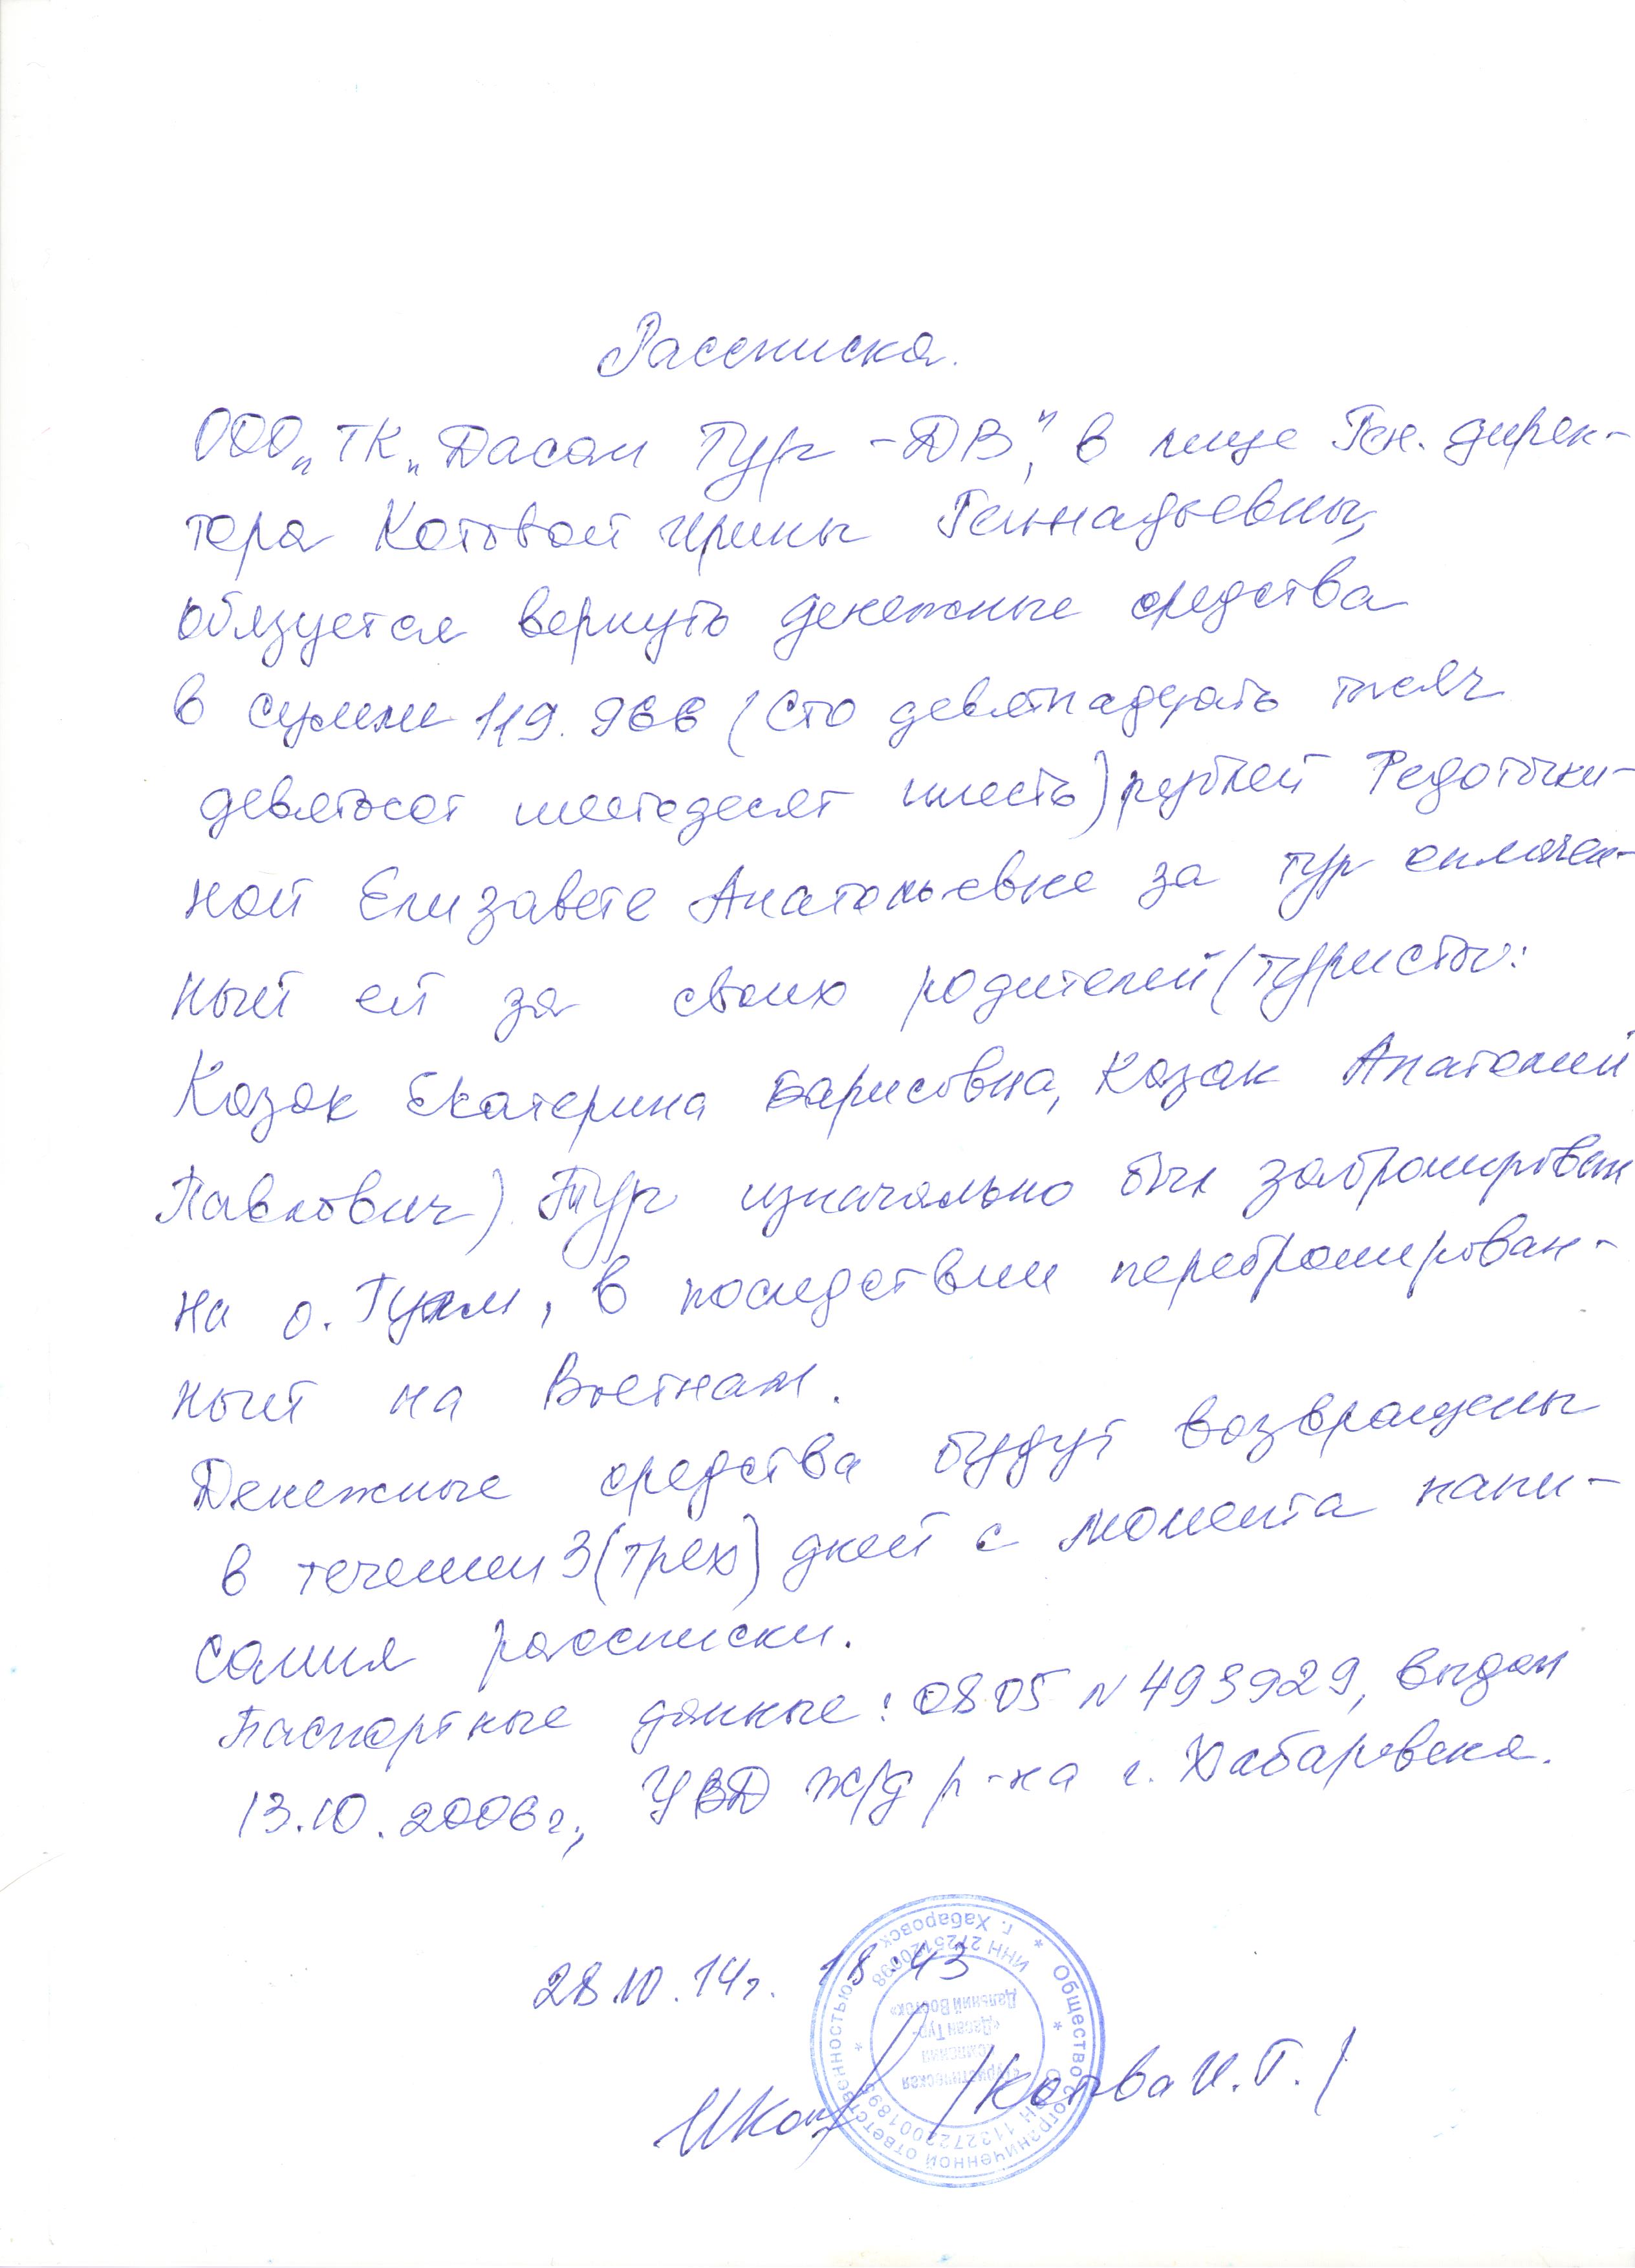 Рассписка.
ООО „ТК „Дасан Тур - ДВ", в лице Ген. дирек-
тора Котовой Ирины Геннадьевны,
обязуется вернуть денежные средства
в сумме 119.966 (Сто девятнадцать тысяч
девятьсот шестьдесят шесть) рублей Федоточки-
ной Елизавете Анатольевне за тур оплачен-
ный ей за своих родителей (туристы:
Козак Екатерина Барисовна, Козак Анатолий
Павлович). Тур изначально был забронирован
на о. Гуам, в последствии перебронирован-
ный на Вьетнам.
Денежные средства будут возвращены
в течении 3 (трех) дней с момента напи-
сания рассписки.
Паспортные данные: 0805 N 493929, выдан
13.10.2006г., УВД ж/д р-на г. Хабаровска.
28.10.14г. 18:43
/Котова И.Г./
Общество с ограниченной ответственностью
* г. Хабаровск *
ИНН
«Туристическая
компания
«Дасан Тур-
Дальний Восток»